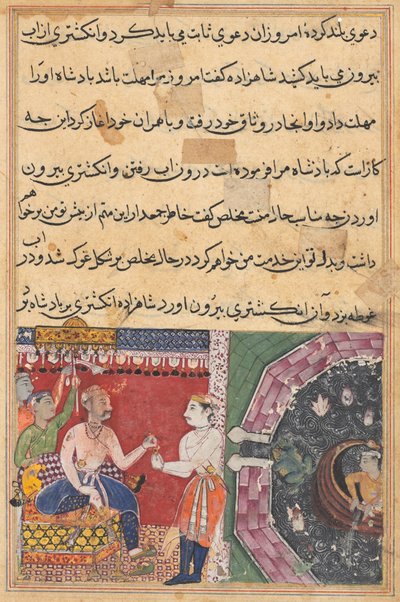 دعوی بلند کرده امروز ان دعوی ثابت می باید کرد و انکشتری از اب
بیرون می باید کشید شاهزاده کفت امروز مرا مهلت باشد بادشاه اورا
مهلت داد و او انجا در وثاق خود رفت و با همران خود اغاز کرد این چه
کار است که بادشاه مرا فرموده است درون اب رفتن و انکشتری بیرون
اوردن چه مناسب حال منست مخلص کفت خاطر جمع دار این مهم از پیش تو من بر خواهم
داشت و بدل تو این خدمت من خواهم کرد در حال مخلص بر شکل غوک شد و در اب
غوطه برد و ان انکشتری بیرون اورد شاهزاده انکشتری بر بادشاه برد